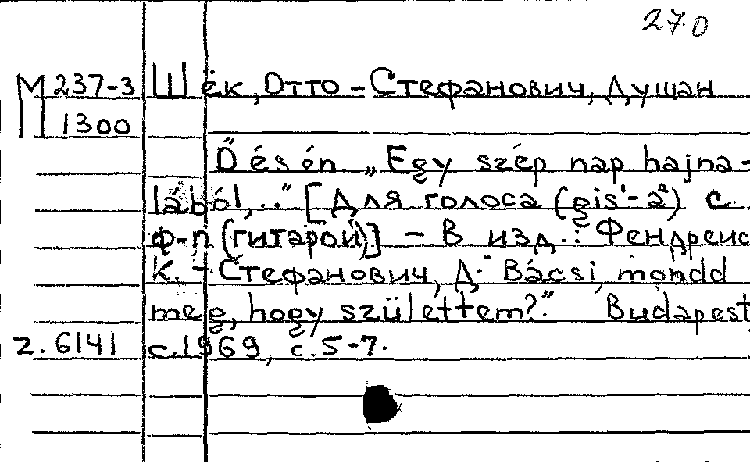 270
М 237-3 Шёк, Отто - Стефанович, Душан
1300
Ő és én „Egy szép nap hajna-
lából,.." [Для голоса (gis¹-a²) с
ф-п (гитарой)] - В изд.: Фендреис
К. - Стефанович, Д. "Bácsi, mondd
meg, hogy születtem?". Budapest,
2.6141 с.1969, с.5-7.